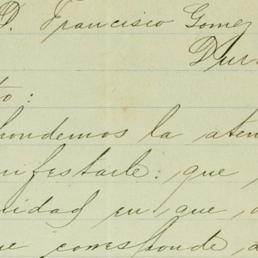 D. Francisco Gomez
Dur
to:
pondemos la aten
nifestarle: que
nidad en que
ue corresponde a